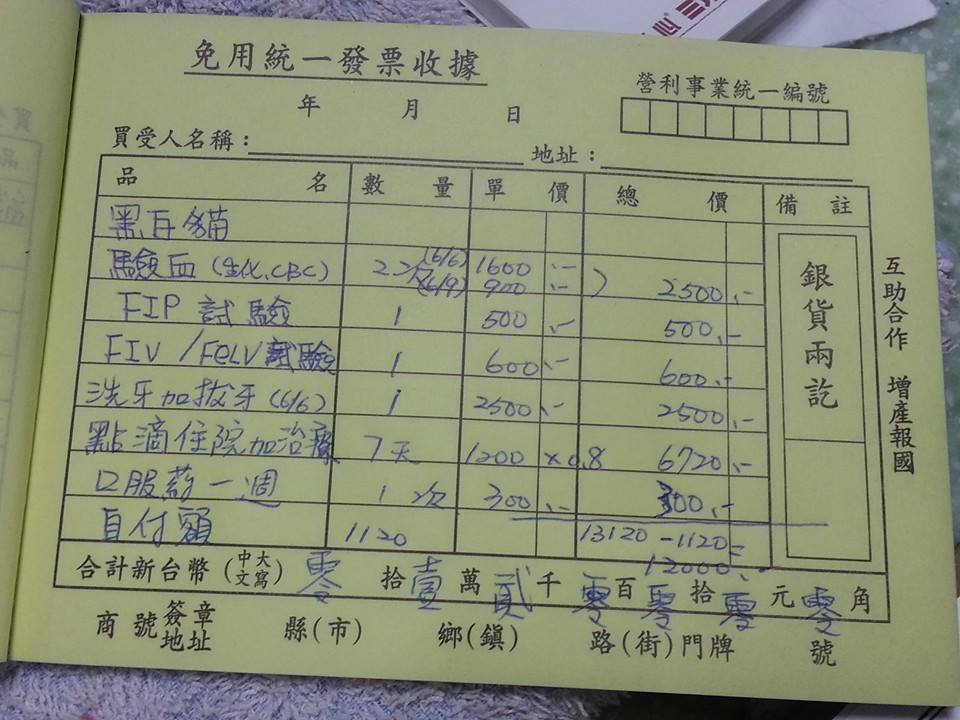 免用統一發票收據
年 月 日
營利事業統一編號
買受人名稱： 地址：
品名 數量 單價 總價 備註
黑白貓
驗血(生化.CBC) 2次 (6/6) 1600.- (6/9) 900.- ) 2500.-
FIP 試驗 1 500.- 500.-
FIV/FeLV試驗 1 600.- 600.-
洗牙加拔牙(6/6) 1 2500.- 2500.-
點滴住院加治療 7天 1200 x0.8 6720.-
口服葯一週 1次 300.- 300.-
自付額 1120 13120-1120=
12000.-
合計新台幣(中文大寫) 零拾壹萬貳千零百零拾零元零角
商號簽章地址 縣(市) 鄉(鎮) 路(街)門牌 號
銀貨兩訖
互助合作 增產報國